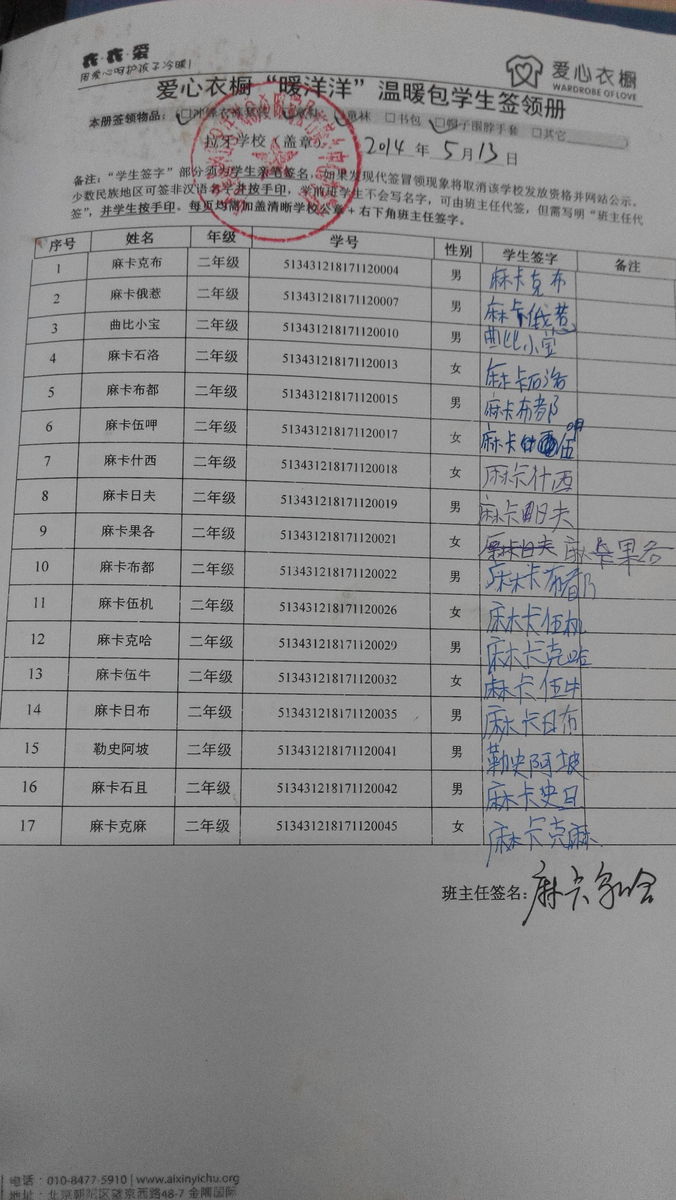 衣·衣·爱
用爱心呵护孩子冷暖!
爱心衣橱
WARDROBE OF LOVE
爱心衣橱“暖洋洋”温暖包学生签领册
本册签领物品: □童袜 □书包 □帽子围脖手套 □其它
拉牙学校(盖章) 2014 年 5 月 13 日
备注:“学生签字”部分须为学生亲笔签名,如果发现代签冒领现象将取消该学校发放资格并网站公示。
少数民族地区可签非汉语名字并按手印,学前班学生不会写名字,可由班主任代签,但需写明“班主任代
签”,并学生按手印。每页均需加盖清晰学校公章+右下角班主任签字。
序号 姓名 年级 学号 性别 学生签字 备注
1 麻卡克布 二年级 513431218171120004 男 麻卡克布
2 麻卡俄惹 二年级 513431218171120007 男 麻卡俄惹
3 曲比小宝 二年级 513431218171120010 男 曲比小宝
4 麻卡石洛 二年级 513431218171120013 女 麻卡石洛
5 麻卡布都 二年级 513431218171120015 男 麻卡布都
6 麻卡伍呷 二年级 513431218171120017 女 麻卡伍呷
7 麻卡什西 二年级 513431218171120018 女 麻卡什西
8 麻卡日夫 二年级 513431218171120019 男 麻卡日夫
9 麻卡果各 二年级 513431218171120021 女 麻卡日夫 麻卡果各
10 麻卡布都 二年级 513431218171120022 男 麻卡布都
11 麻卡伍机 二年级 513431218171120026 女 麻卡伍机
12 麻卡克哈 二年级 513431218171120029 男 麻卡克哈
13 麻卡伍牛 二年级 513431218171120032 女 麻卡伍牛
14 麻卡日布 二年级 513431218171120035 男 麻卡日布
15 勒史阿坡 二年级 513431218171120041 男 勒史阿坡
16 麻卡石且 二年级 513431218171120042 男 麻卡史日
17 麻卡克麻 二年级 513431218171120045 女 麻卡克麻
班主任签名: 麻卡
电话:010-8477-5910 | www.aixinyichu.org
地址:北京朝阳区望京西路48-7 金隅国际